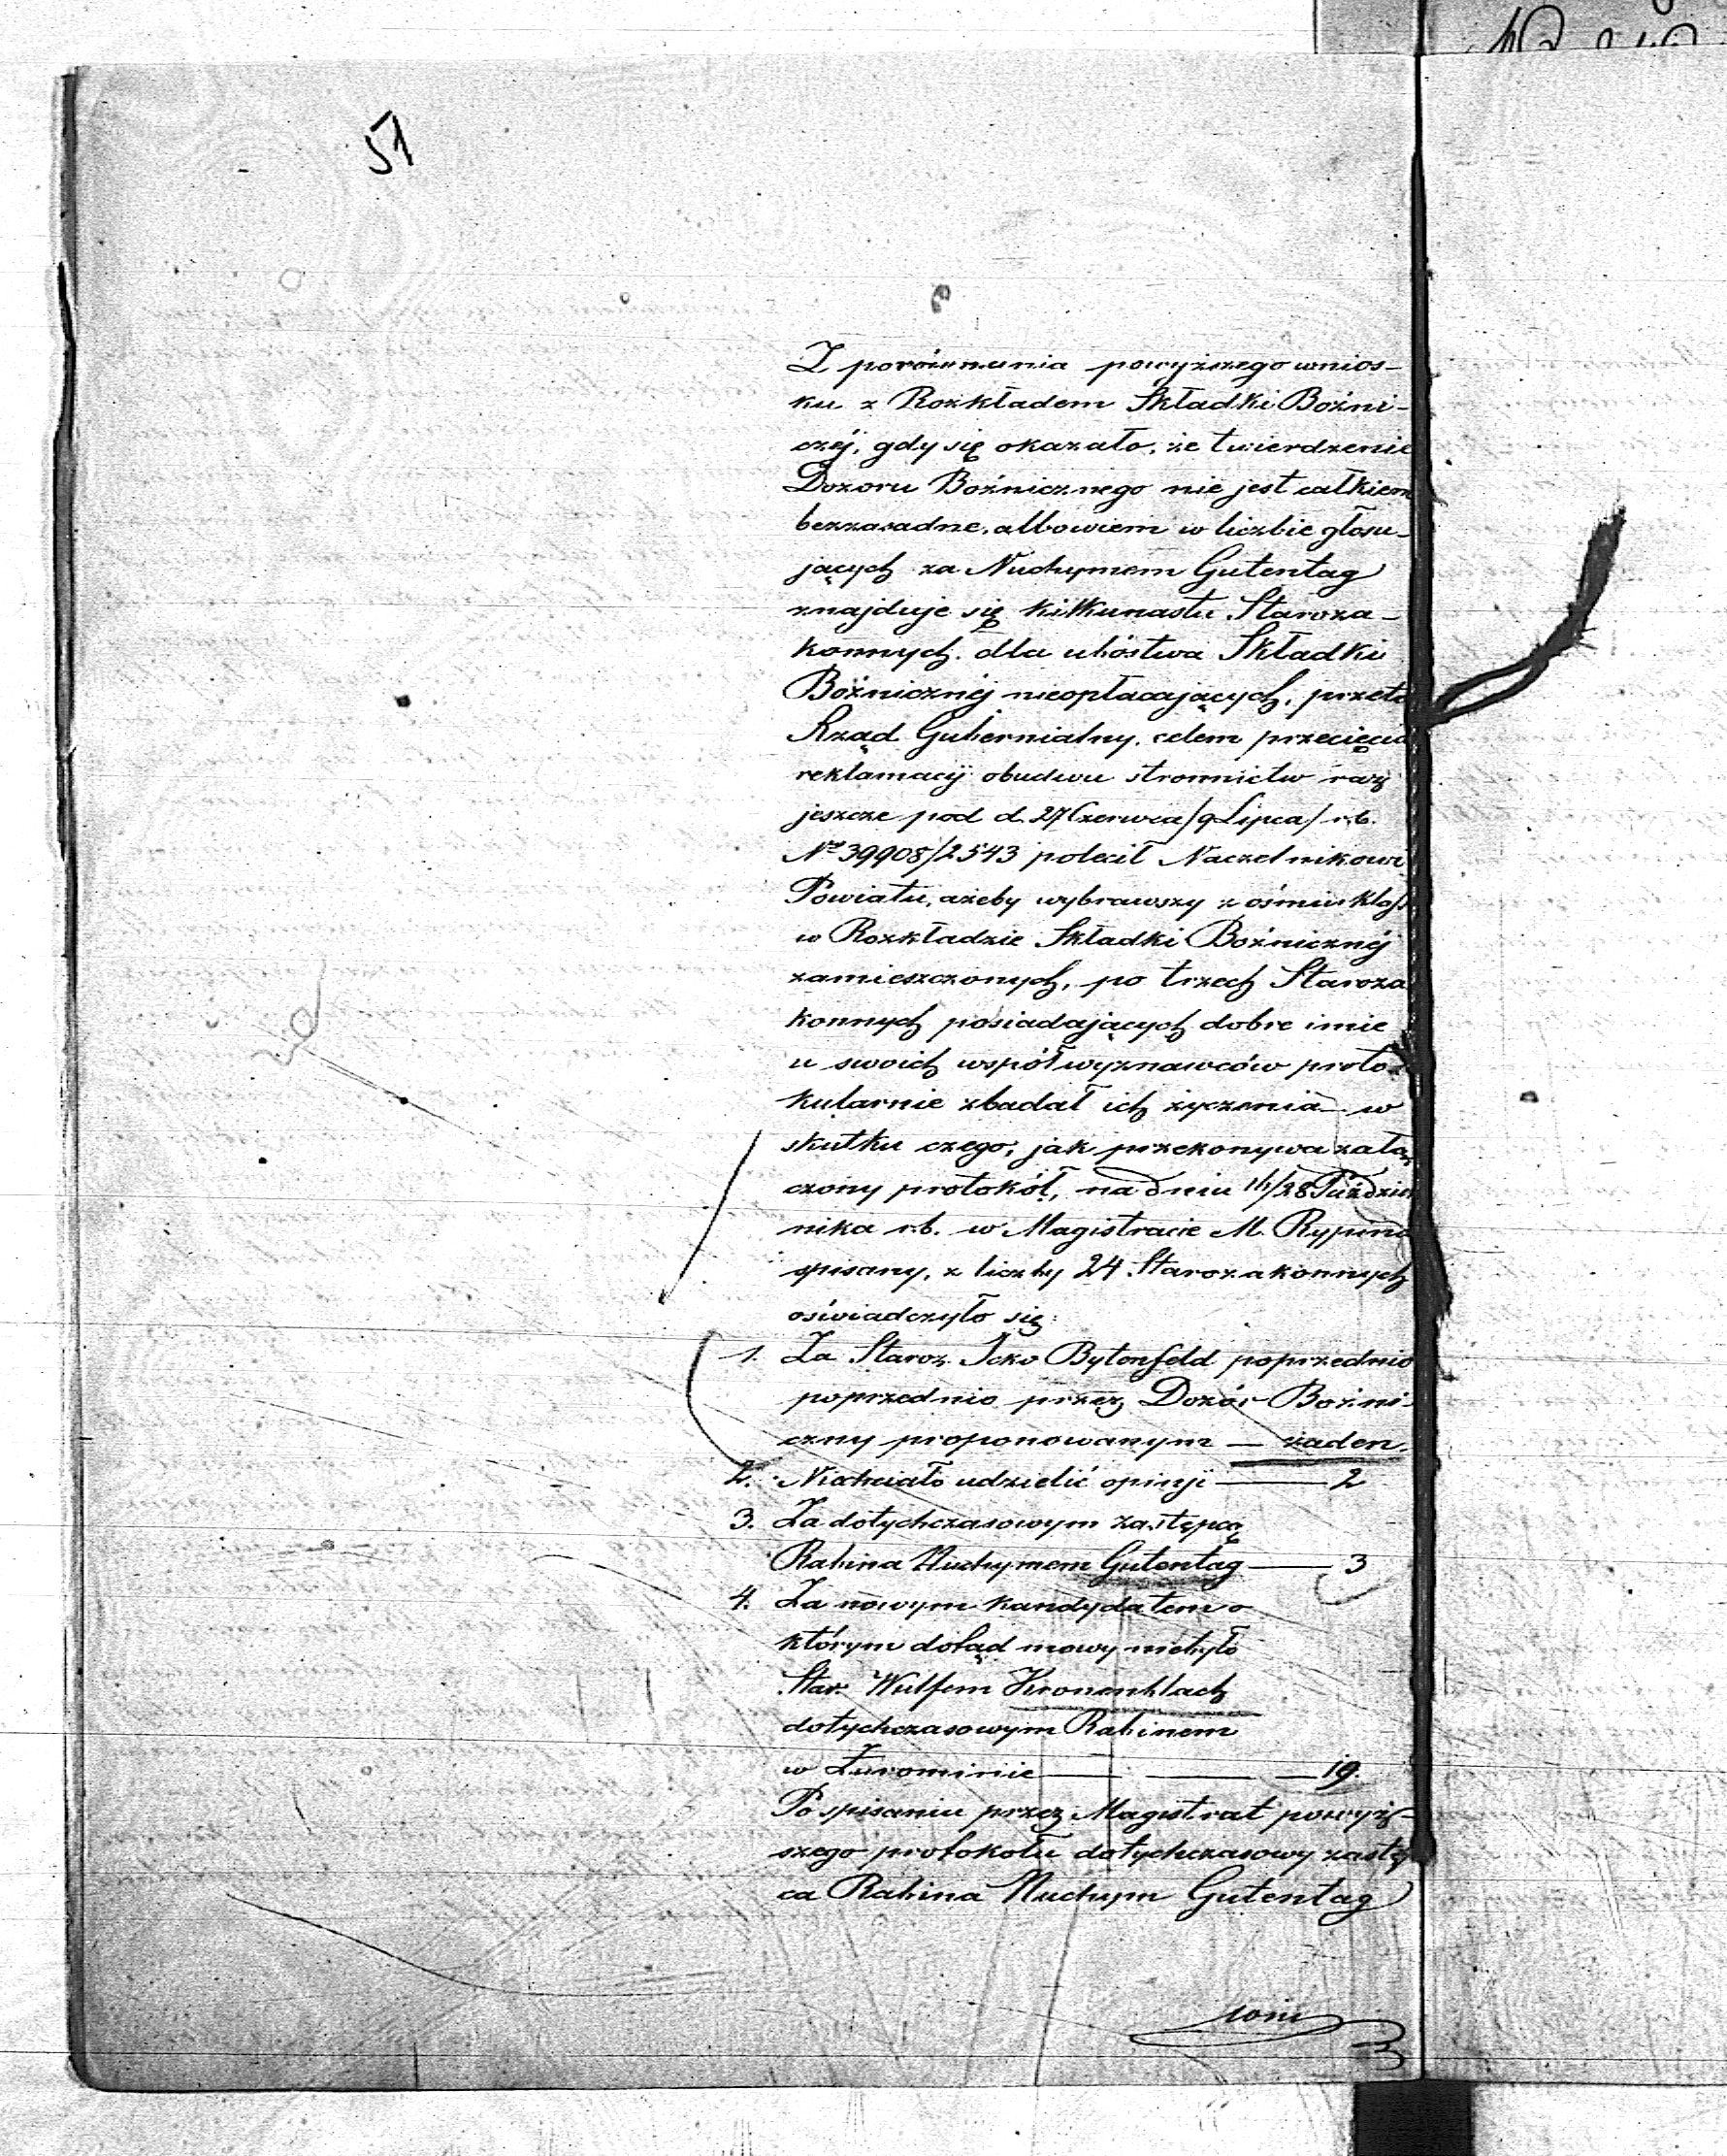 51
Z porównania powyższego wnios-
ku z Rozkładem Składki Bożni-
czéj, gdy się okazało, że twierdzenie
Dozoru Bożnicznego nie jest całkiem
bezzasadne, albowiem w liczbie głosu-
jących za Nuchymem Gutentag
znajduje się kilkunastu Staroza-
konnych dla ubóstwa Składki
Bożnicznéj nieopłacających, przeto
Rząd Gubernialny, celem przecięcia
reklamacij obudwu stronnictw raz
jeszcze pod d. 27 Czerwca /9 Lipca/ r.b.
Nº 39908/2543 polecił Naczelnikowi
Powiatu, ażeby wybrawszy z ośmiu klass
w Rozkładzie Składki Bożnicznéj
zamieszczonych, po trzech Staroza
konnych posiadających dobre imie
u swoich współwyznawców proto-
kularnie zbadał ich życzenia — w
skutku czego, jak przekonywa załą-
czony protokół, na dniu 16/28 Paździer
nika r.b. w Magistracie M. Rypina
spisany, z liczby 24 Starozakonnych
oświadczyło się:
1. Za Staroz. Icko Bytenfeld poprzednio
poprzednio przez Dozór Bożni-
czny proponowanym — żaden.
2. Niechciało udzielić opinji — 2
3. Za dotychczasowym zastępcą
Rabina Nuchymem Gutentag — 3
4. Za nowym kandydatem o
którym dotąd mowy niebyło
Star. Wulfem Kronenblach
dotychczasowym Rabinem
w Żurominie — — — 19.
Po spisaniu przez Magistrat powyż-
szego protokołu dotychczasowy zastęp
ca Rabina Nuchym Gutentag